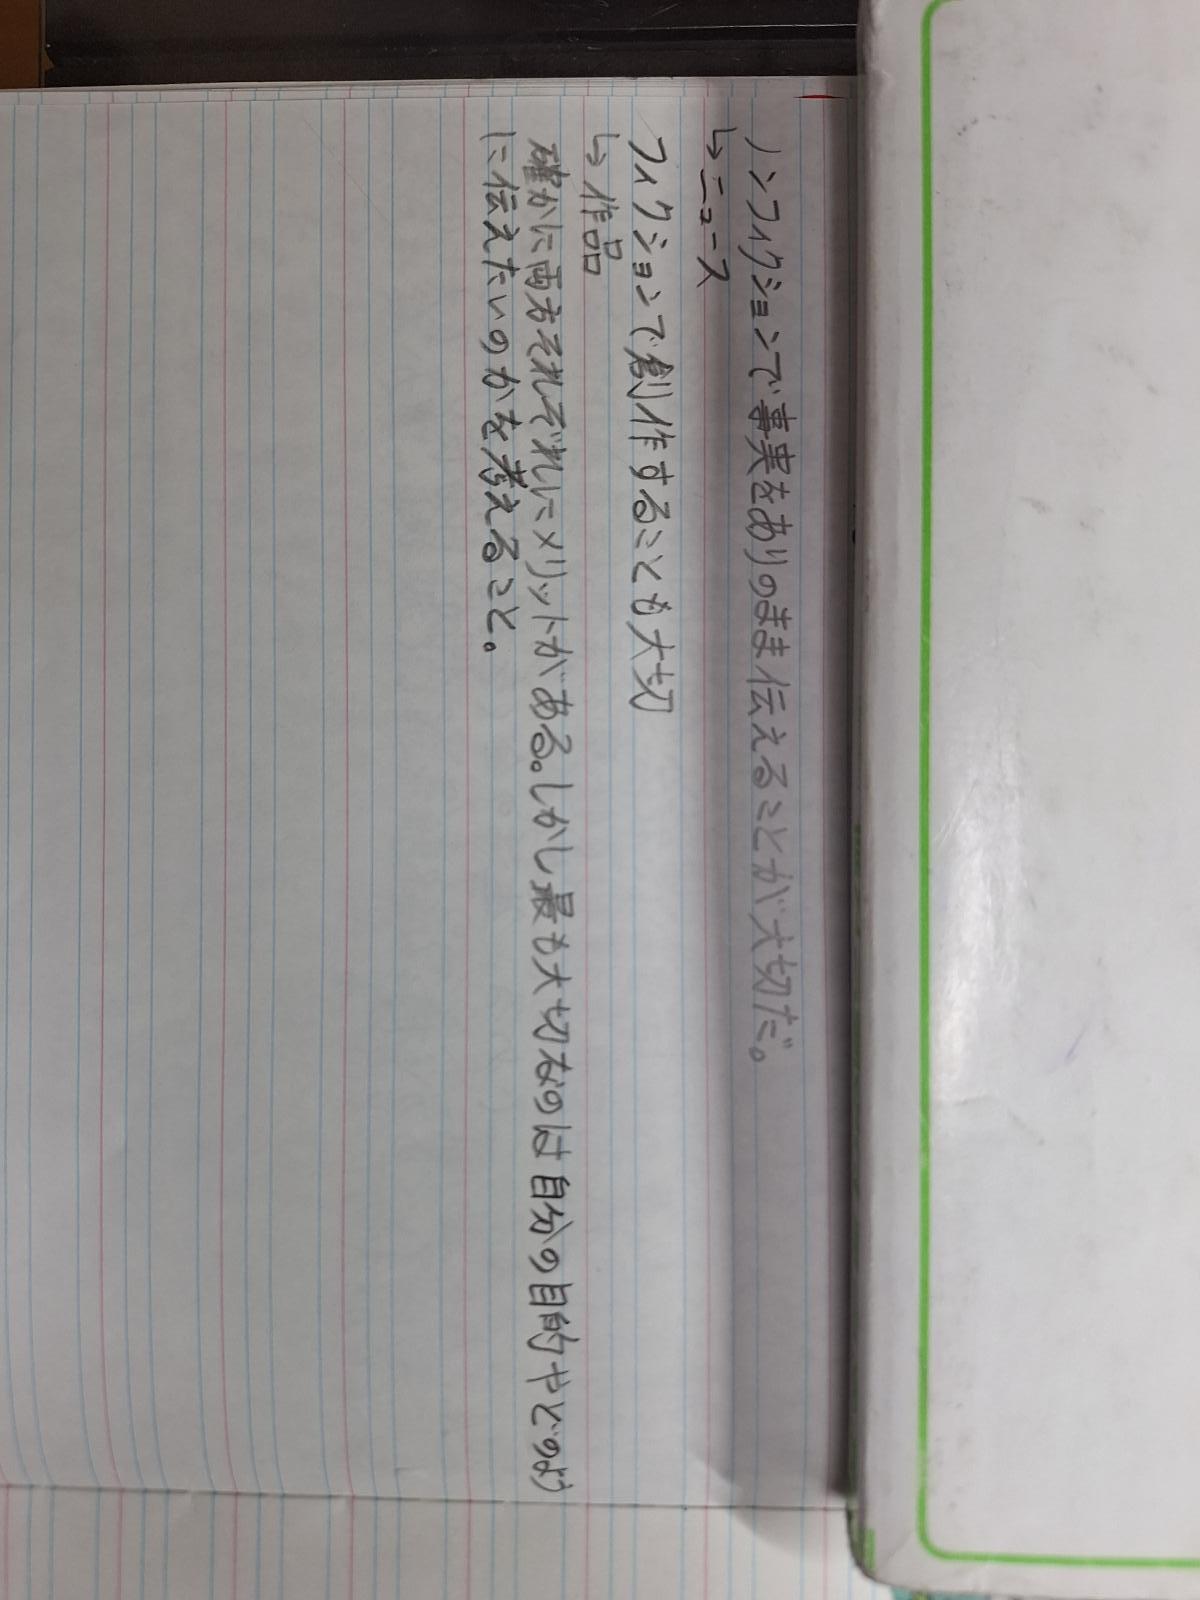 ノンフィクションで事実をありのまま伝えることが大切だ。
↳ニュース
フィクションで創作することも大切
↳作品
確かに両方それぞれにメリットがある。しかし最も大切なのは自分の目的やどのよう
に伝えたいのかを考えること。